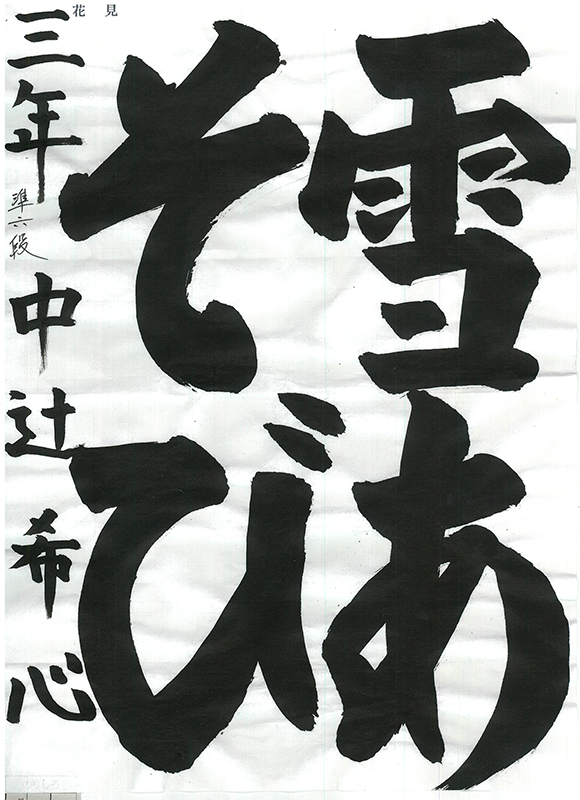 雪あ
そび
三年 準六段 中辻希心
花見